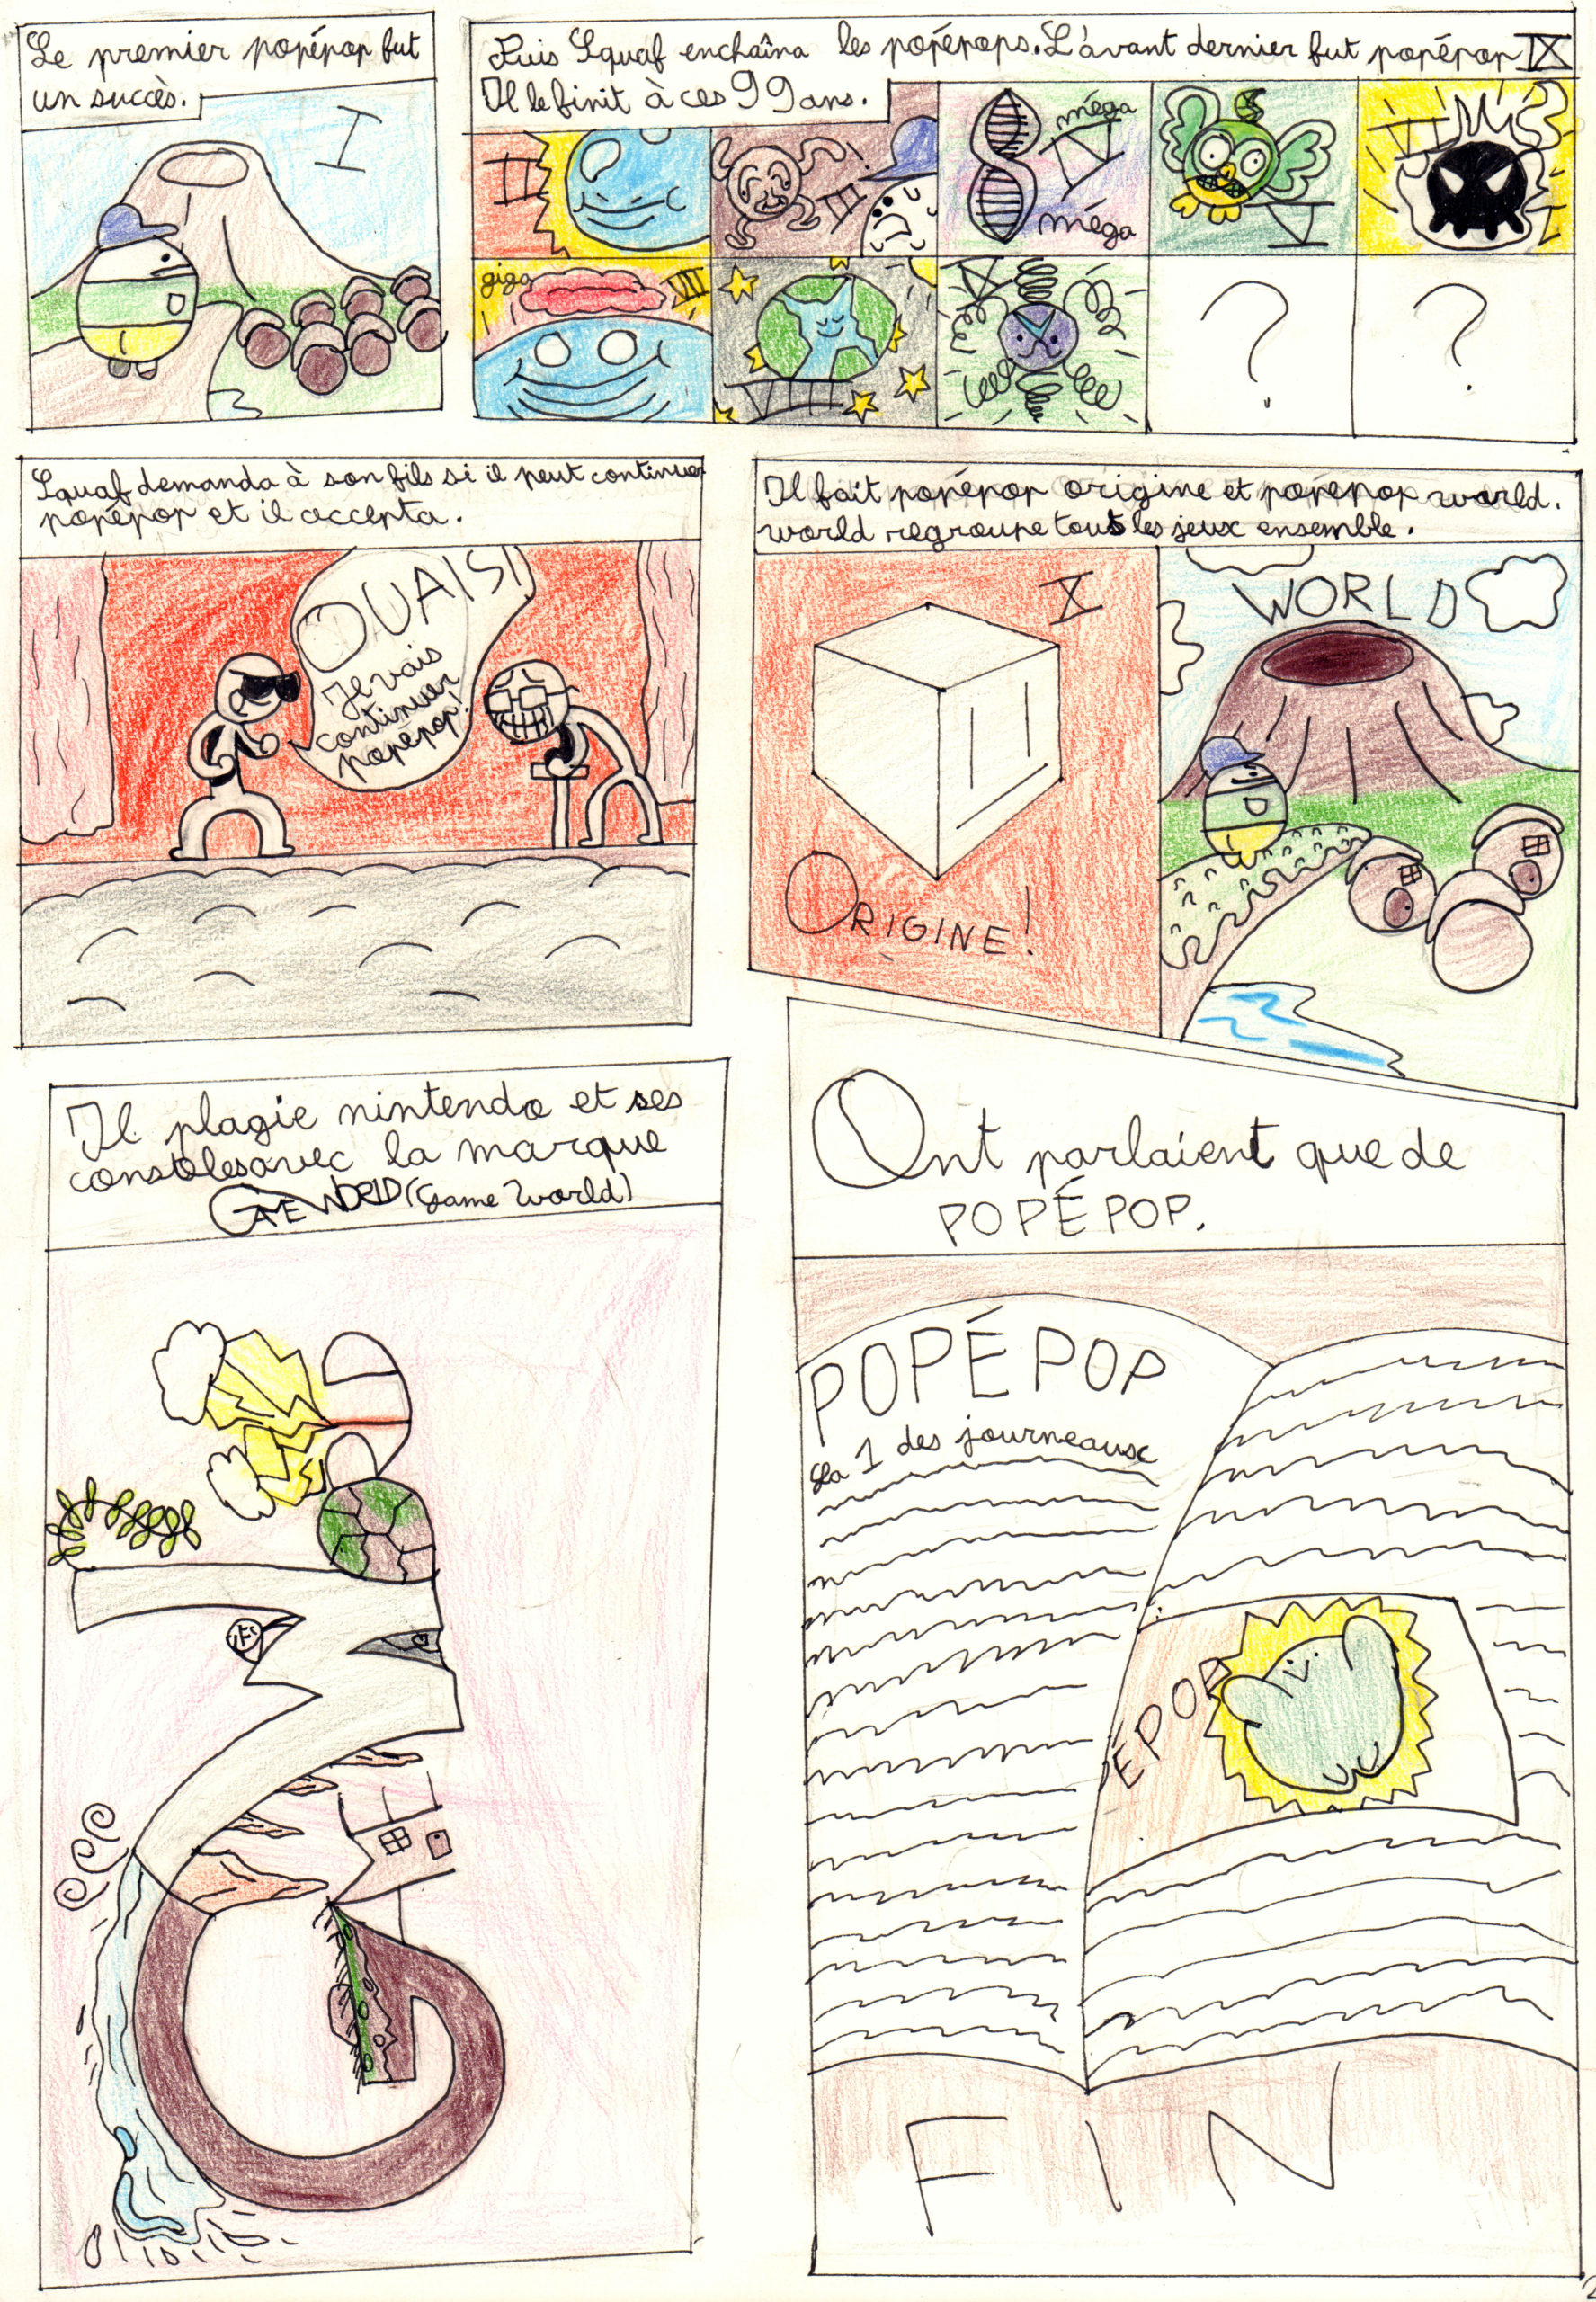 Le premier popépop fut
un succès.
I
Puis Squaf enchaîna les popépops. L'avant dernier fut popépop IX
Il le finit à ces 99 ans.
II
III
!
méga
IV
méga
V
VI
giga
VII
VIII
IX
?
?
Squaf demanda à son fils si il peut continuer
popépop et il accepta.
OUAIS!
Je vais
continuer
popépop!
Il fait popépop origine et popépop world.
world regroupe touts les jeux ensemble.
X
ORIGINE!
WORLD
Il plagie nintendo et ses
consoles avec la marque
GAME WORLD (Game World)
Ont parlaient que de
POPÉPOP.
POPÉPOP
La 1 des journeaux
ÉPOP
FIN
2